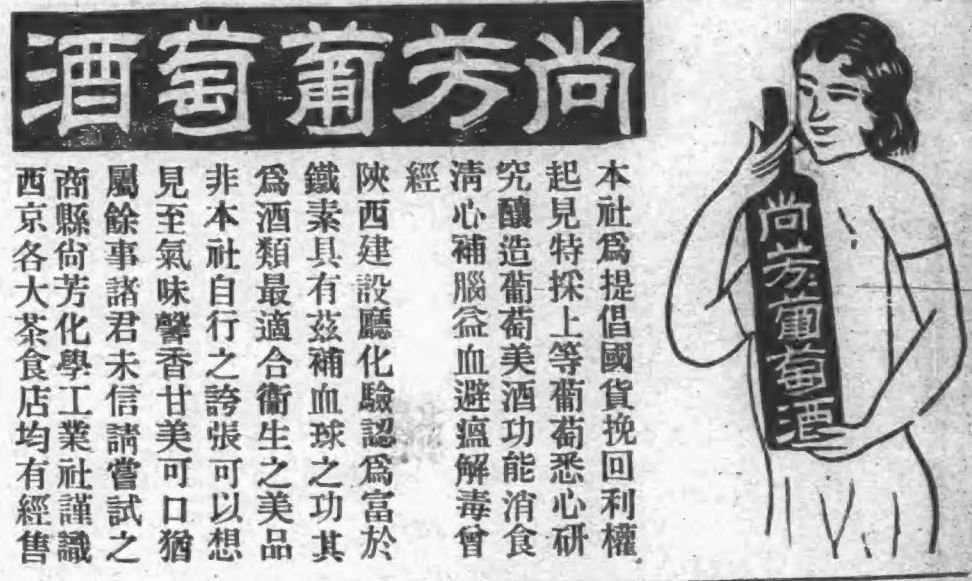 尚芳葡萄酒
本社爲提倡國貨挽回利權
起見特採上等葡萄悉心研
究釀造葡萄美酒功能消食
清心補腦益血避瘟解毒曾
經
陝西建設廳化驗認爲富於
鐵素具有茲補血球之功其
爲酒類最適合衞生之美品
非本社自行之誇張可以想
見至氣味馨香甘美可口猶
屬餘事諸君未信請嘗試之
商縣尙芳化學工業社謹識
西京各大茶食店均有經售
尚芳葡萄酒